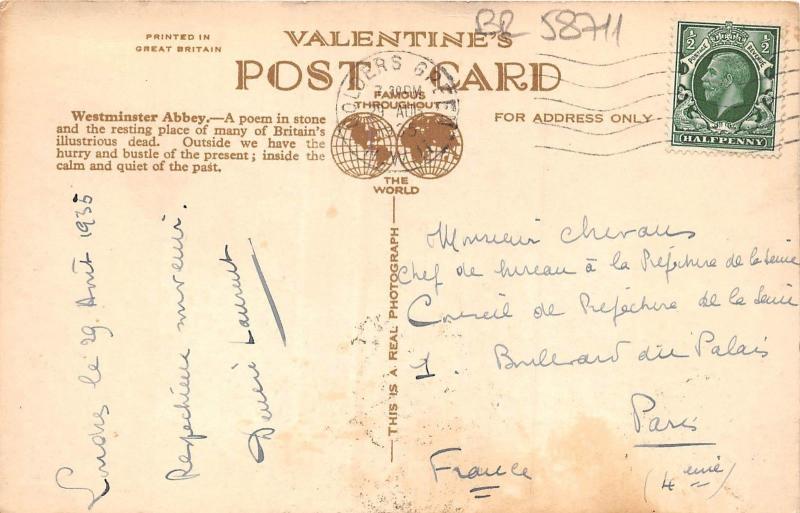 BR 58711
PRINTED IN
GREAT BRITAIN
VALENTINE'S
POST CARD
FAMOUS
THROUGHOUT
THE
WORLD
FOR ADDRESS ONLY
Westminster Abbey.—A poem in stone
and the resting place of many of Britain's
illustrious dead. Outside we have the
hurry and bustle of the present; inside the
calm and quiet of the past.
GOLDERS GREEN
7.30PM
29 AUG
POSTAGE REVENUE
½ ½
HALFPENNY
THIS IS A REAL PHOTOGRAPH
Londres le 29 Août 1935
Respectueux souvenir.
Laurent
Monsieur
Chef de bureau à la Préfecture de la Seine
Conseil de Préfecture de la Seine
1. Boulevard du Palais
Paris
(4eme)
France